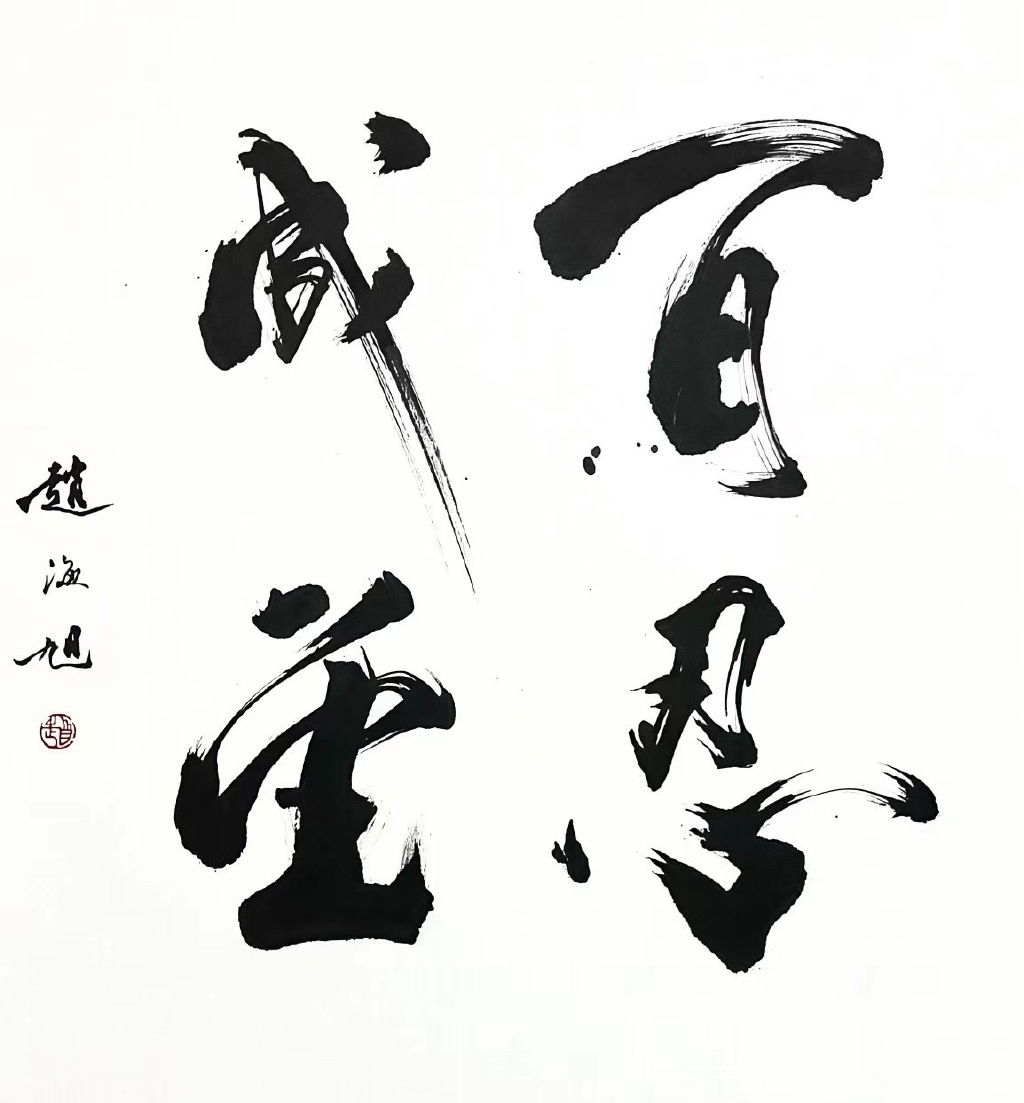 百忍
成金
趙海旭